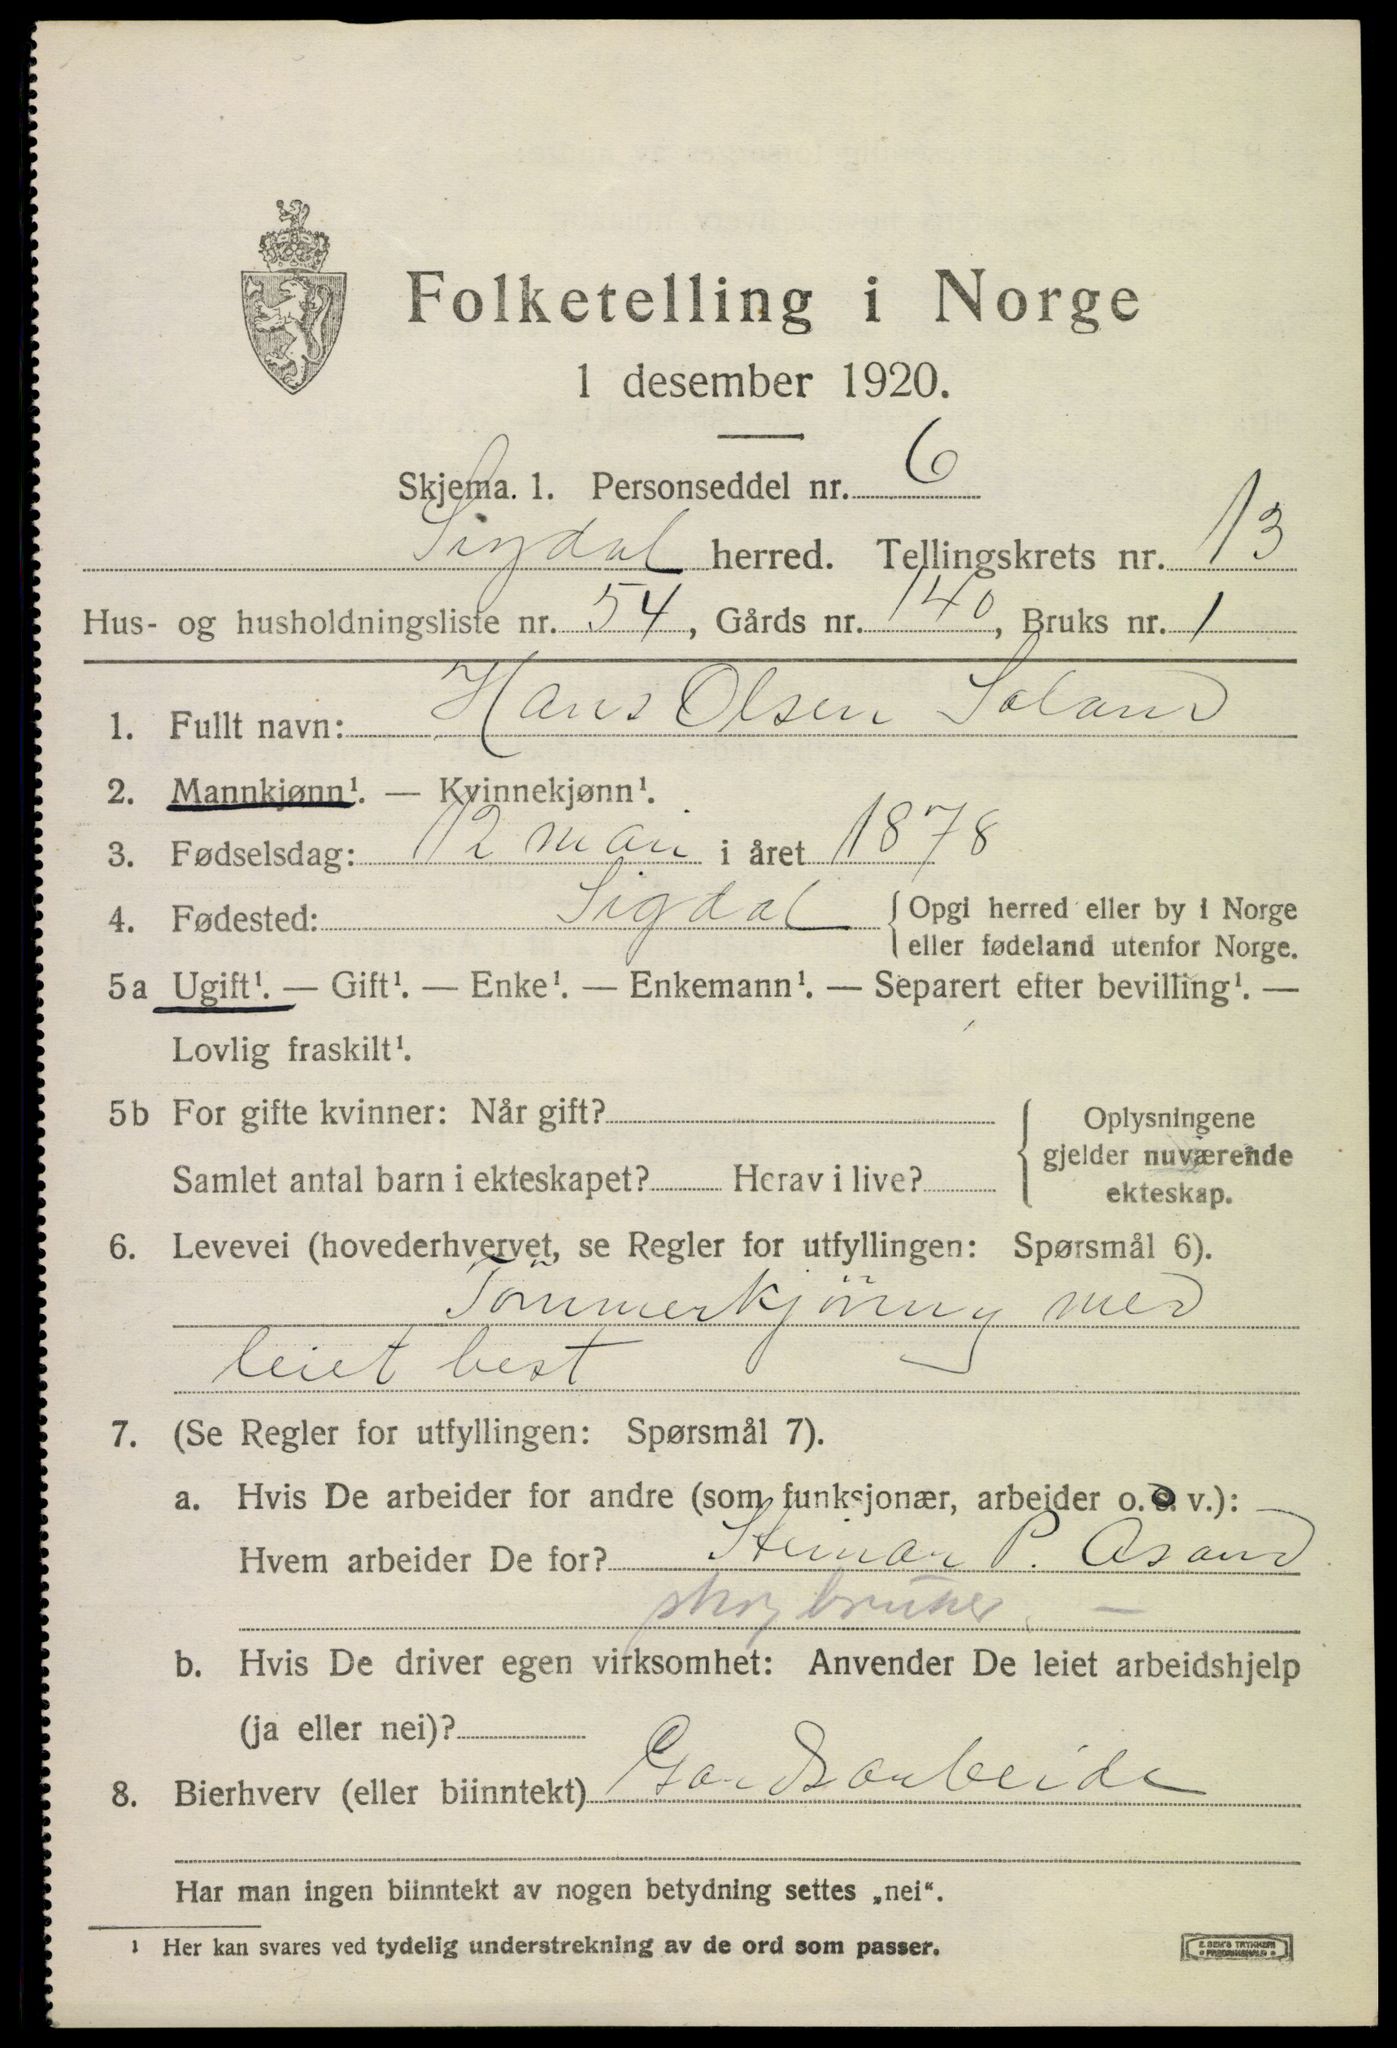 Folketelling i Norge
1 desember 1920.
Skjema. 1. Personseddel nr. 6
Sigdal herred. Tellingskrets nr. 13
Hus- og husholdningsliste nr. 54, Gårds nr. 140, Bruks nr. 1
1. Fullt navn: Hans Olsen Soland
2. Mannkjønn¹. — Kvinnekjønn¹.
3. Fødselsdag: 12 mai i året 1878
4. Fødested: Sigdal { Opgi herred eller by i Norge
eller fødeland utenfor Norge.
5a Ugift¹. — Gift¹. — Enke¹. — Enkemann¹. — Separert efter bevilling¹. —
Lovlig fraskilt¹.
5b For gifte kvinner: Når gift? { Oplysningene
gjelder nuværende
Samlet antal barn i ekteskapet? Herav i live? ekteskap.
6. Levevei (hovederhvervet, se Regler for utfyllingen: Spørsmål 6).
Tömmerkjöring med
leiet hest
7. (Se Regler for utfyllingen: Spørsmål 7).
a. Hvis De arbeider for andre (som funksjonær, arbeider o. s. v.):
Hvem arbeider De for? Steinar P. Asand
skogbruker —
b. Hvis De driver egen virksomhet: Anvender De leiet arbeidshjelp
(ja eller nei)?
8. Bierhverv (eller biinntekt) Gardsarbeide
Har man ingen biinntekt av nogen betydning settes „nei“.
¹ Her kan svares ved tydelig understrekning av de ord som passer.
E. SEM'S TRYKKERI
FREDRIKSHALD